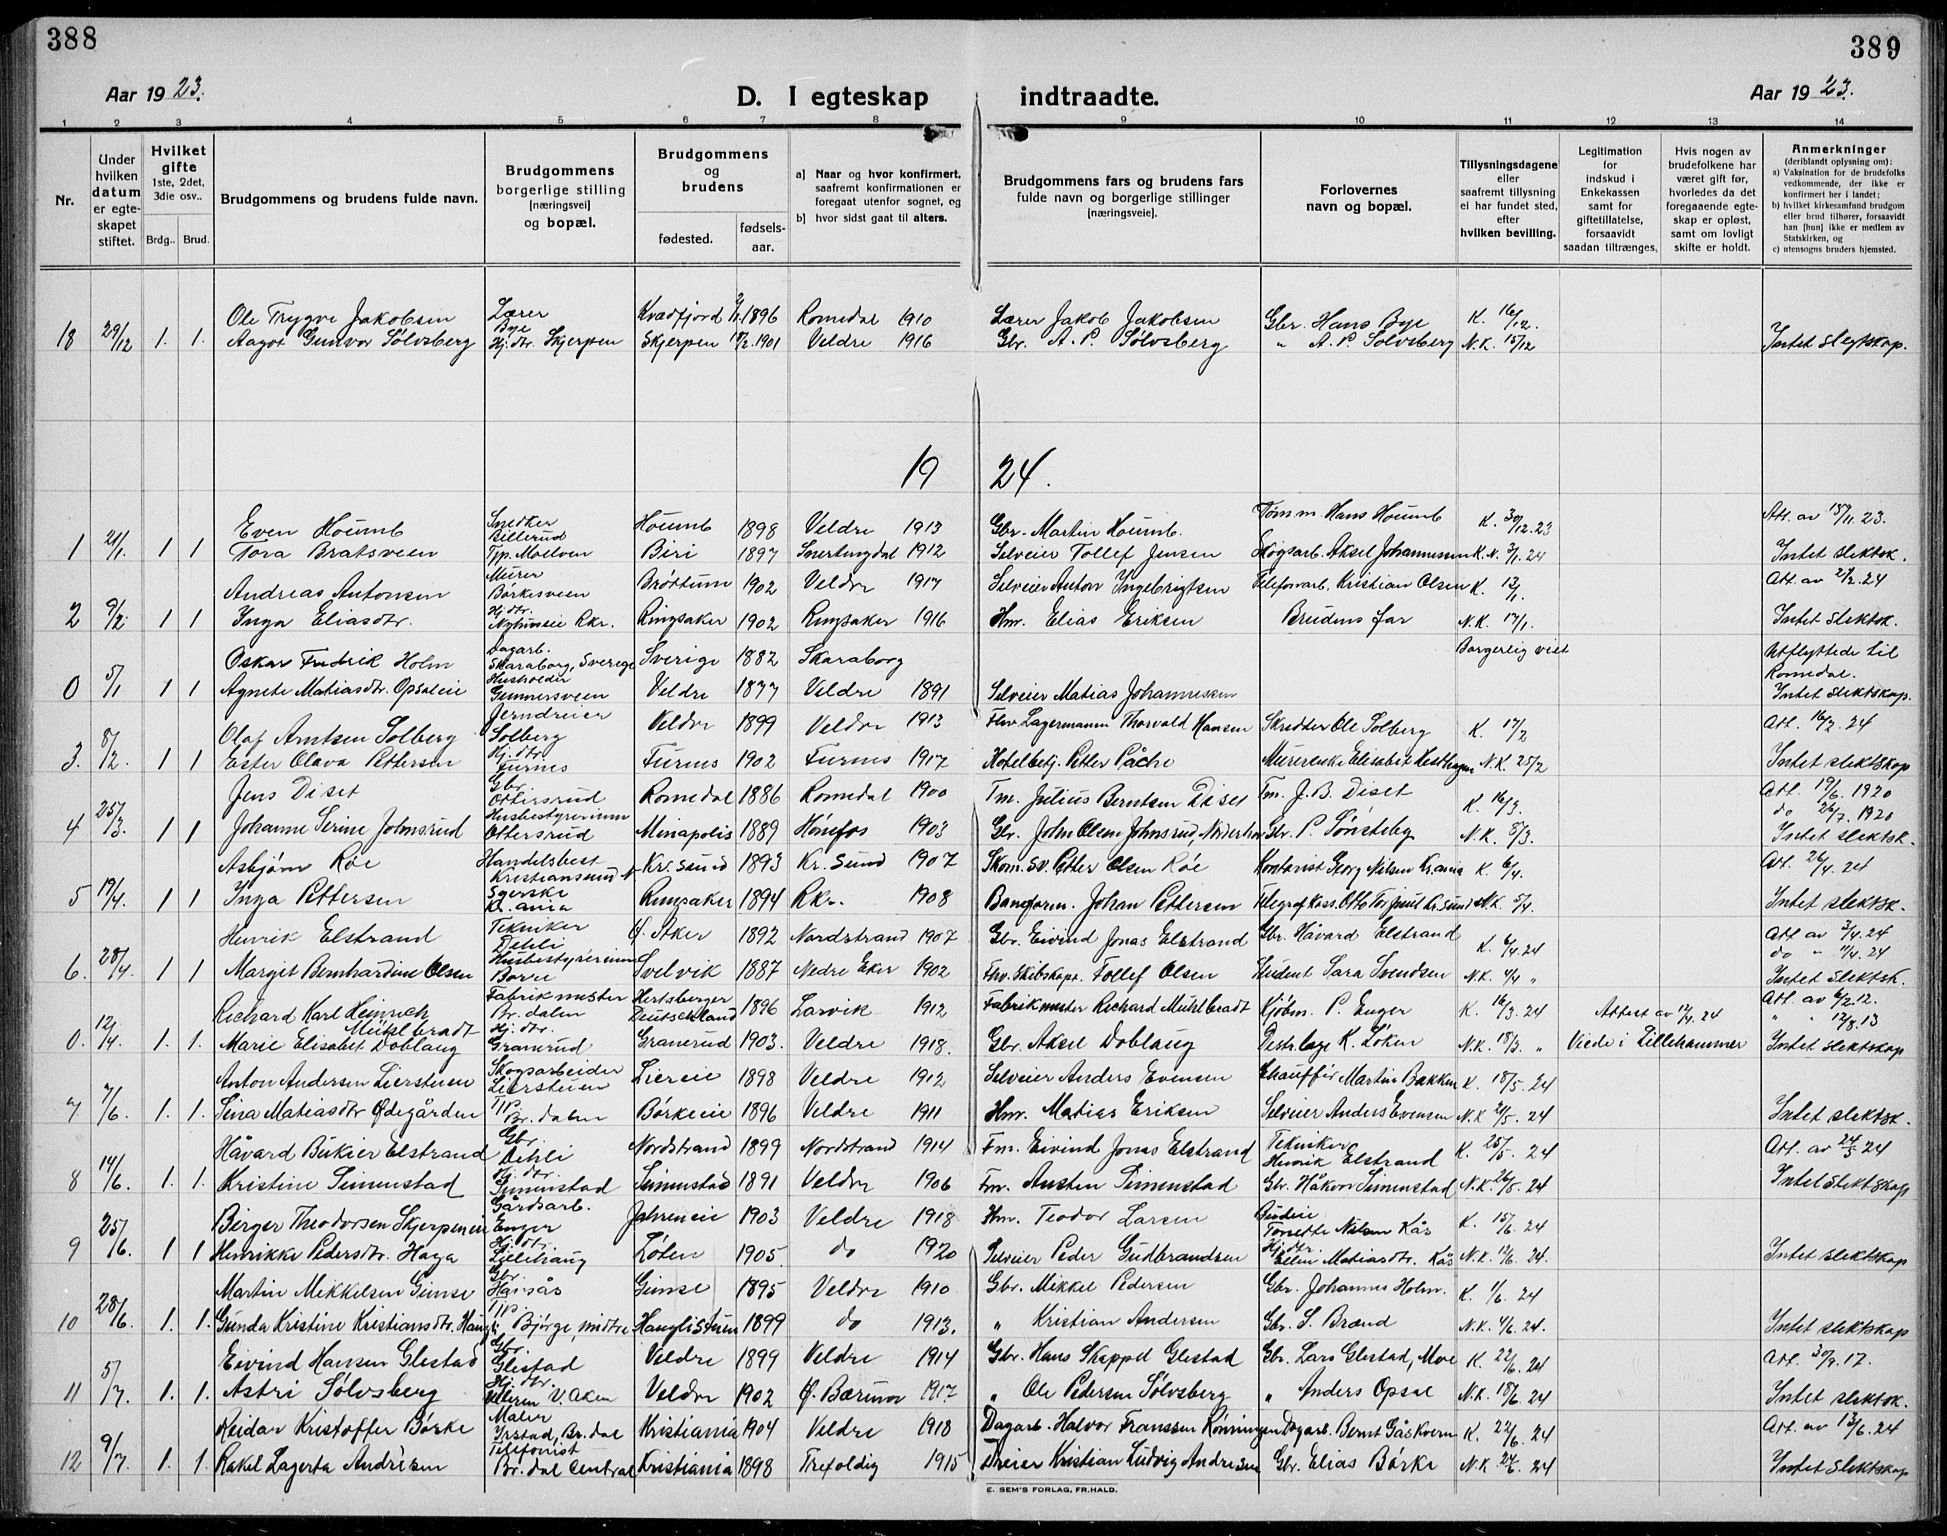 388
389
Aar 1923.
D. I egteskap indtraadte.
Aar 1923.
1 2 3 4 5 6 7 8 9 10 11 12 13 14
Nr.
Under hvilken datum er egteskapet stiftet.
Hvilket gifte 1ste, 2det, 3die osv..
Brdg.. Brud.
Brudgommens og brudens fulde navn.
Brudgommens borgerlige stilling [næringsvei] og bopæl.
Brudgommens og brudens
fødested. fødselsaar.
a] Naar og hvor konfirmert, saafremt konfirmationen er foregaat utenfor sognet, og
b] hvor sidst gaat til alters.
Brudgommens fars og brudens fars fulde navn og borgerlige stillinger [næringsveie].
Forlovernes navn og bopæl.
Tillysningsdagene eller saafremt tillysning ei har fundet sted, efter hvilken bevilling.
Legitimation for indskud i Enkekassen samt for giftetillatelse, forsaavidt saadan tiltrænges,
Hvis nogen av brudefolkene har været gift før, hvorledes da det foregaaende egteskap er opløst, samt om lovligt skifte er holdt.
Anmerkninger (deriblandt oplysning om):
a) Vaksination for de brudefolks vedkommende, der ikke er konfirmert her i landet;
b) hvilket kirkesamfund brudgom eller brud tilhører, forsaavidt han [hun] ikke er medlem av Statskirken, og
c) utensogns bruders hjemsted.
Ole Trygve Jakobsen Lærer Bye Kvædfjord 1896 Romedal 1910 Lærer Jakob Jakobsen Gbr. Hans Bye K. 16/12.
18 29/12 1. 1. Aagot Gunvor Sølvsberg Hj. dtr. Skjerpen Skjerpen 1901 Veldre 1916 Gbr. A. P. Sølvsberg " A. P. Sølvsberg N.K. 15/12 Intet slegtskap.
1924.
Even Houmb Snedker Billerud Houmb 1898 Veldre 1913 Gbr. Martin Houmb. Tømm. Hans Houmb K. 30/12.23 Att. av 13/11. 23.
1 21/1. 1 1 Tora Bratsveen Tjp. Moelven Biri 1897 Snertingdal 1912 Selveier Tollef Jensen Skogsarb. Aksel Johannessen K.N. 3/1. 24 Intet slektsk.
Andreas Antonsen Murer Børkesveen Brøttum 1902 Veldre 1917 Selveier Anton Ingebrigtsen Telefonarb. Kristian Olsen K. 13/1. Att. av 2/2. 24
2 9/2. 1 1 Inga Eliasdtr. Hj. dtr. Rkr. Ringsaker 1902 Ringsaker 1916 Hm. Elias Eriksen Brudens far N.K. 17/1. Intet slektsk.
Oskar Fredrik Holm Dagarb. Skaraborg, Sverige Sverige 1882 Skaraborg Borgerlig viet Utflyttede til Romedal.
0 5/1 1 1 Agnete Matiasdtr. Opsaleie Husholder Gunnersveen Veldre 1877 Veldre 1891 Selveier Matias Johannessen Intet slektskap.
Olaf Arntsen Solberg Jerndreier Solberg Veldre 1899 Veldre 1913 Fhv. Lagermann Thorvald Hansen Skrædder Ole Solberg K. 17/2 Att. 16/2. 24
3. 8/2. 1 1 Ester Olava Pettersen Hj. dtr. Furnes Furnes 1902 Furnes 1917 Hotelbetj. Petter Påche Murerenke Elisabet Hesthagen N.K. 25/2 Intet slektskap
Jens Diset Gbr. Ottersrud Romedal 1886 Romedal 1900 Tm. Julius Berntsen Diset Tm. J. B. Diset K. 16/3. Att. 19/6. 1920 do 26/7. 1920
4 25/3. 1 1 Johanne Serine Johnsrud Husbestyrerinne Ottersrud Minapolis 1889 Hønefos 1903 Gbr. John Olsen Johnsrud, Norderhov Gbr. P. Tønsteby N.K. 5/3. Intet slektsk.
Asbjørn Røe Handelsbest Kristiansund N Kr. sund 1893 Kr. Sund 1907 Skom. sv. Petter Olsen Røe Kontorist Georg Nilsen Kr.ania K. 6/4. Att. 26/4. 24
5 19/4. 1 1 Inga Pettersen Syerske Kr.ania Ringsaker 1894 Rkr. 1908 Banform. Johan Pettersen N.K. 5/4. Intet slektsk.
Henrik Elstrand Tekniker Dehli Ø. Aker 1892 Nordstrand 1907 Gbr. Eivind Jonas Elstrand Gbr. Håvard Elstrand K. 6/4.24 Att av 3/4. 24 do " 1/4. 24
6. 28/4. 1 1 Margit Bernhardine Olsen Husbestyrerinne Svelvik 1887 Nedre Eker 1902 Fhv. Skibskapt. Tollef Olsen Student Sara Svendsen N.K. 4/4 " Intet slektsk.
Richard Karl Heinrich Mühlbradt Fabrikmester Br. dalen Hertsberger Deutschland 1896 Larvik 1912 Fabrikmester Richard Mühlbradt Kjøbm. P. Enger K. 16/3. 24 Attest av 12/4. 24 Att. av 6/2. 12. " " 12/8.13
0. 12/4. 1. 1. Marie Elisabet Doblaug Hj. dtr. Granerud Granerud 1903. Veldre 1918. Gbr. Aksel Doblaug Destr. best. K. Løken N.K. 18/3. " Viede i Lillehammer Intet slektskap
Anton Andersen Lierstuen Skogsarbeider Lierstuen Liereie 1898 Veldre 1912 Selveier Anders Evensen Chauffør Martin Bakken K. 18/5. 24
7 7/6. 1. 1. Sina Matiasdtr Ødegården Tjp. Br. dalen Børkeeie 1896 Veldre 1911 Hm. Matias Eriksen Selveier Anders Evensen N.K. 21/5. 24 Intet slektsk.
Håvard Bükier Elstrand Gbr. Dehli Nordstrand 1899 Nordstrand 1914 Fm. Eivind Jonas Elstrand Tekniker Henrik Elstrand K. 25/5. 24 Att. av 24/5 24
8 14/6. 1. 1. Kristine Simenstad Hj. dtr. Simenstad Simenstad 1891 Veldre 1906 Fm. Austin Simenstad Gbr. Håkon Simenstad N.K. 26/5. 24 Intet slektskap
Birger Theodorsen Skjerpeneie Gårdsarb. Enger Jahreneie 1903 Veldre 1918 Hm. Teodor Larsen Budeie Torsette Nilsen Kås K. 15/6. 24
9 25/6. 1 1 Henrikke Pedersdtr. Haga Hj. dtr. Lillehaug Løten 1905. do 1920 Selveier Peder Gudbrandsen Hj. dtr. Ellen Matiasdtr. Kås N.K. 12/6. 24. Intet slektskap
Martin Mikkelsen Gimse Gbr. Hasås Gimse 1895 Veldre 1910 Gbr. Mikkel Pedersen Gbr. Johannes Holm. K. 1/6. 24
10 28/6. 1. 1. Gunda Kristine Kristiansdtr. Haugli Tjp. Bjørge, midtre Hauglistuen 1899 do 1913. " Kristian Andersen Gbr. S. Brænd N.K. 4/6. 24. Intet slektskap
Eivind Hansen Glestad Gbr. Glestad Veldre 1899 Veldre 1914 Gbr. Hans Skappel Glestad Gbr. Lars Glestad, Moe K. 22/6. 24 Att. 30/9. 17.
11 5/7. 1. 1. Astri Sølvsberg Hj. dtr. V. Aken Veldre 1902 Ø. Bærum 1917. " Ole Pedersen Sølvsberg " Anders Opsal N.K. 18/6. 24 Intet slektsk.
Reidar Kristoffer Børke Maler Yrstad, Br. dal Kristiania 1904 Veldre 1918 Dagarb. Halvor Franssen Rønningen Dagarb. Bernt Gåskvern K. 22/6. 24 Att. av 13/6. 24
12 9/7. 1. 1. Rakel Lagerta Andresen Telefonist Br. dal Central Kristiania 1898 Trefoldig 1915 Dreier Kristian Ludvig Andresen Gbr. Elias Børke N.K. 24/6. 24 Intet slektskap
E. SEM'S FORLAG, FR.HALD.